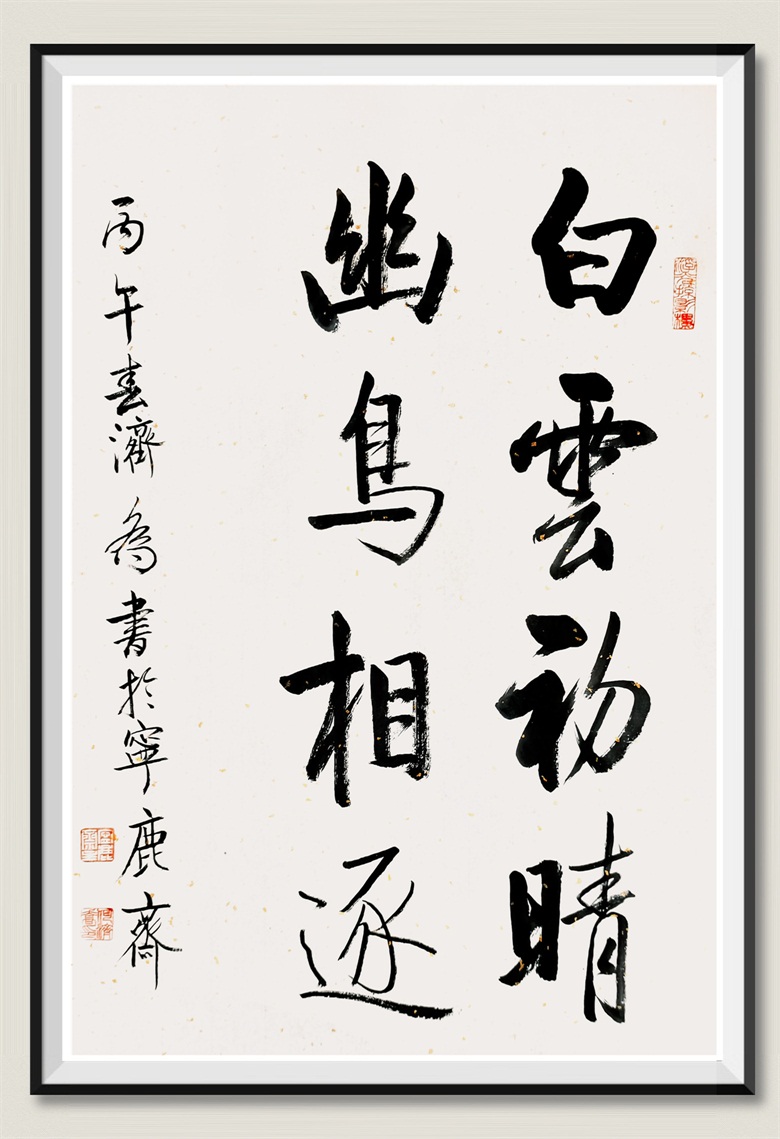 白雲初晴
幽鳥相逐
丙午春濟為書於寧鹿齋